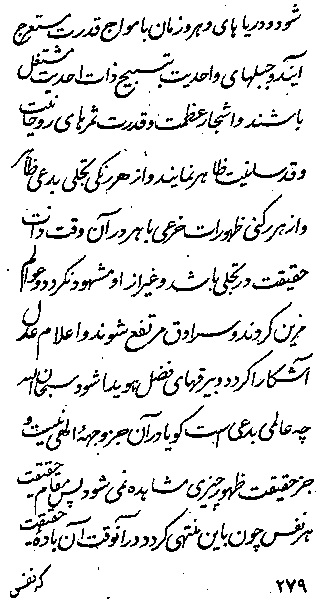 شود و دریاهای دهر و زمان بامواج قدرت متموج
آیند و جبلهای واحدیت بتسبیح ذات احدیت مشتغل
باشند و اشجار عظمت و قدرت ثمرهای روحانیت
و قدسانیت ظاهر نمایند و از هر رنگی تجلی بدعی ظاهر
و از هر کنی ظهورات خرعی باهر در آن وقت ذات
حقیقت در تجلی باشد و غیر از او مشهود نگردد و عوالم
مزین گردند و سرادق مرتفع شوند و اعلام عدل
آشکارا گردد و بیرقهای فضل هویدا شود سبحان الله
چه عالمی بدعی است گویا در آن جز وجههٔ الهی نیست و
جز حقیقت ظهور چیزی مشاهده نمی شود پس مقام حقیقت
هر نفس چون باین منتهی گردد در آنوقت آن بادهٔ حقیقت
۲۷۹
که نفس